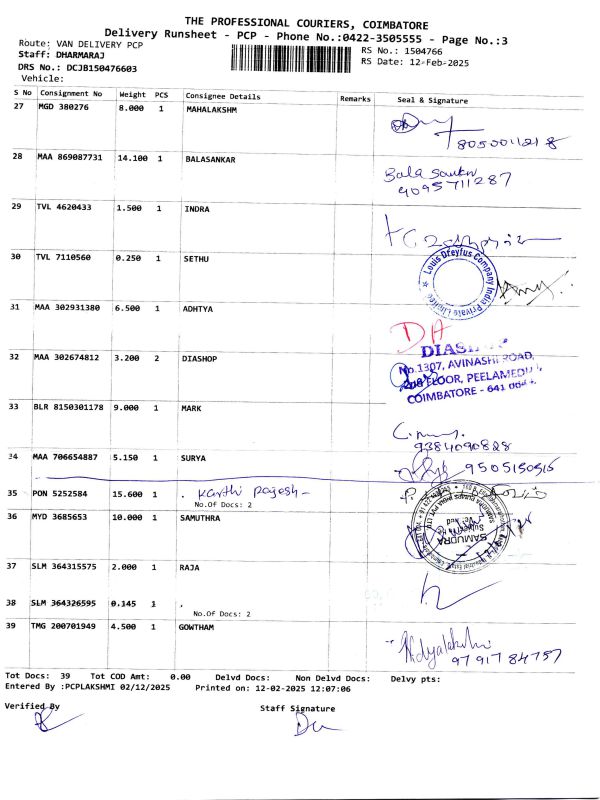 THE PROFESSIONAL COURIERS, COIMBATORE
Delivery Runsheet - PCP - Phone No.:0422-3505555 - Page No.:3
Route: VAN DELIVERY PCP
RS No.: 1504766
Staff: DHARMARAJ
RS Date: 12-Feb-2025
DRS No.: DCJB150476603
Vehicle:
S No Consignment No Weight PCS Consignee Details Remarks Seal & Signature
27 MGD 380276 8.000 1 MAHALAKSHM
8050011218
28 MAA 869087731 14.100 1 BALASANKAR
4095711287
29 TVL 4620433 1.500 1 INDRA
30 TVL 7110560 0.250 1 SETHU
Louis Dreyfus Company India Private Limited
31 MAA 302931380 6.500 1 ADHTYA
DA
32 MAA 302674812 3.200 2 DIASHOP
No.1307, AVINASHI ROAD,
FLOOR, PEELAMEDU
COIMBATORE - 641
33 BLR 8150301178 9.000 1 MARK
9384090828
34 MAA 706654887 5.150 1 SURYA
9505150515
35 PON 5252584 15.600 1 . Karthi Rajesh
No.Of Docs: 2
36 MYD 3685653 10.000 1 SAMUTHRA
SAMUDRA
37 SLM 364315575 2.000 1 RAJA
38 SLM 364326595 0.145 1 .
No.Of Docs: 2
39 TMG 200701949 4.500 1 GOWTHAM
97917 84757
Tot Docs: 39 Tot COD Amt: 0.00 Delvd Docs: Non Delvd Docs: Delvy pts:
Entered By :PCPLAKSHMI 02/12/2025 Printed on: 12-02-2025 12:07:06
Verified By
Staff Signature